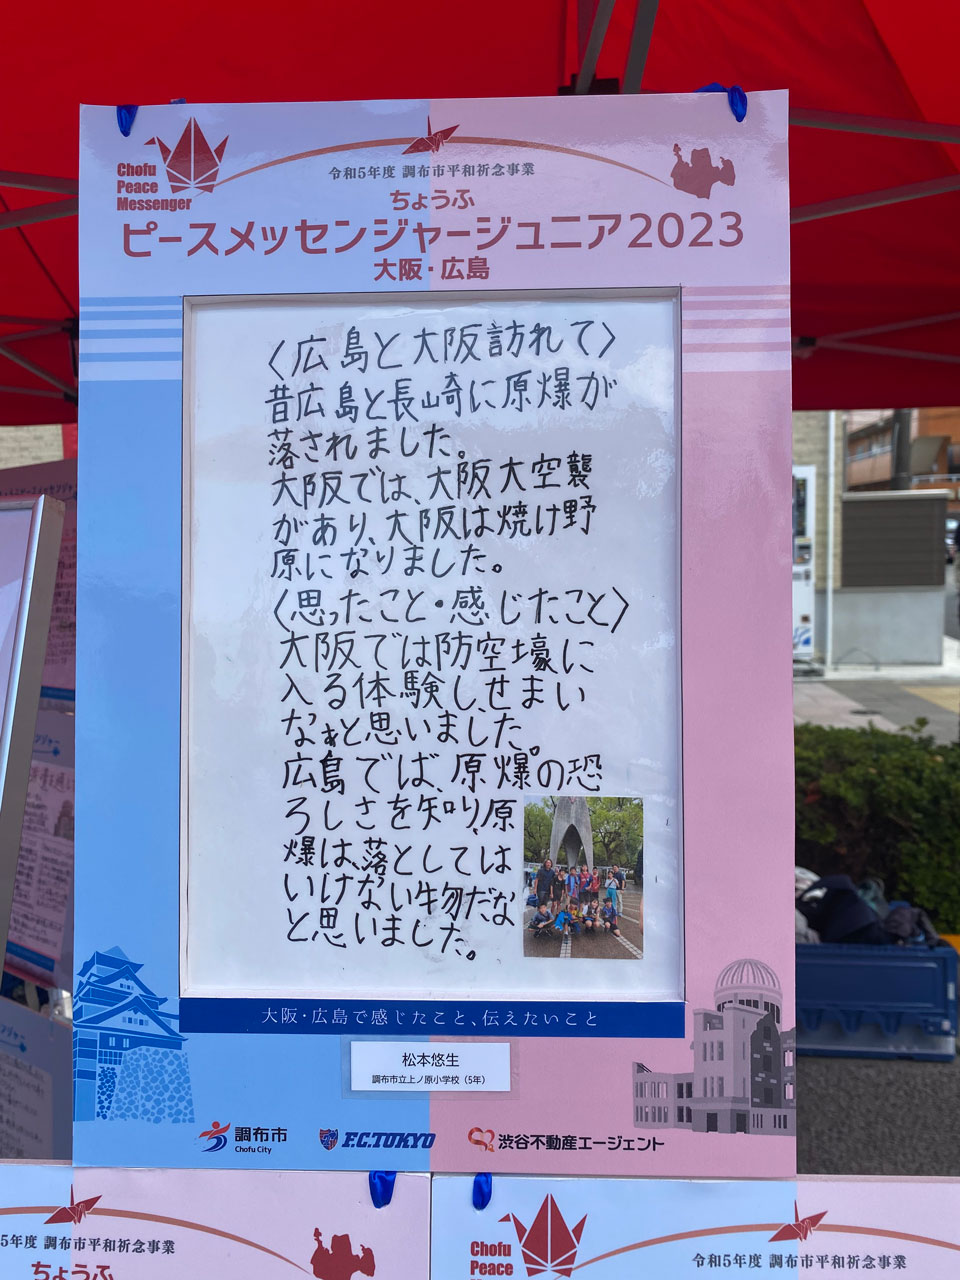 Chofu
Peace
Messenger
令和5年度 調布市平和祈念事業
ちょうふ
ピースメッセンジャージュニア2023
大阪・広島
〈広島と大阪訪れて〉
昔広島と長崎に原爆が
落されました。
大阪では、大阪大空襲
があり、大阪は焼け野
原になりました。
〈思ったこと・感じたこと〉
大阪では防空壕に
入る体験し、せまい
なぁと思いました。
広島では、原爆の恐
ろしさを知り、原
爆は、落としては
いけない物だな
と思いました。
大阪・広島で感じたこと、伝えたいこと
松本悠生
調布市立上ノ原小学校（5年）
調布市
Chofu City
F.C.TOKYO
渋谷不動産エージェント
5年度 調布市平和祈念事業
ちょうふ
Chofu
Peace
令和5年度 調布市平和祈念事業